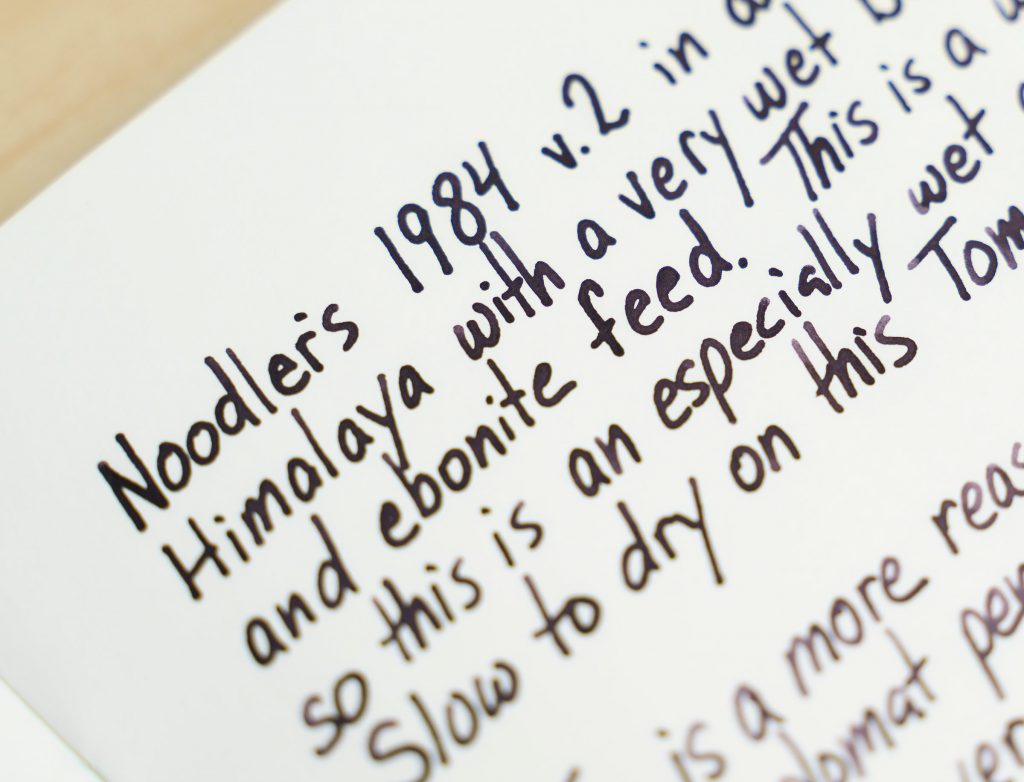 Noodler's 1984 v.2 in a
Himalaya with a very wet
and ebonite feed. This is a
so this is an especially wet
Slow to dry on this Tom
is a more reas
lomat pen